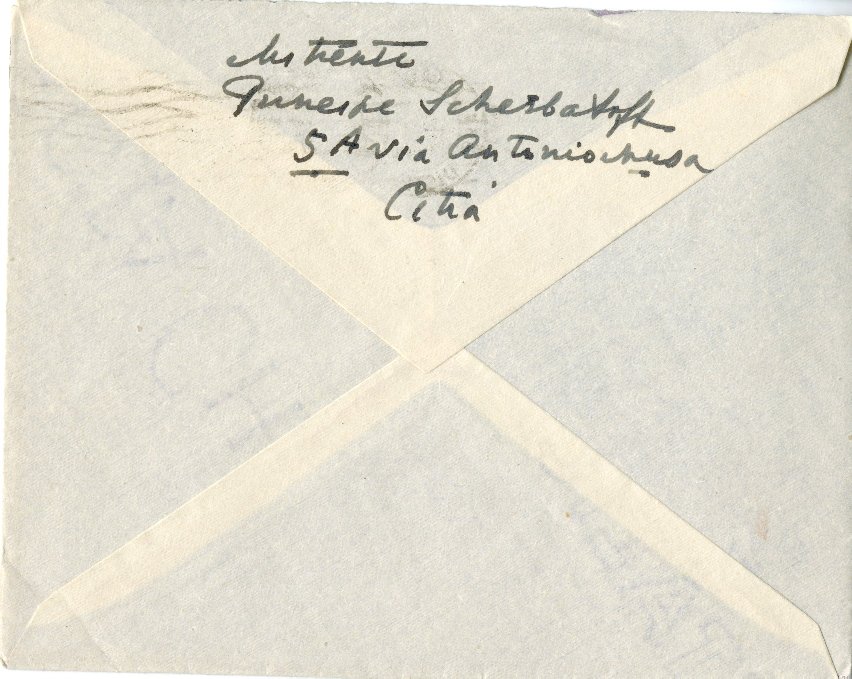 Mittente
Principe Scherbatoff
5A via Antonio Musa
Città